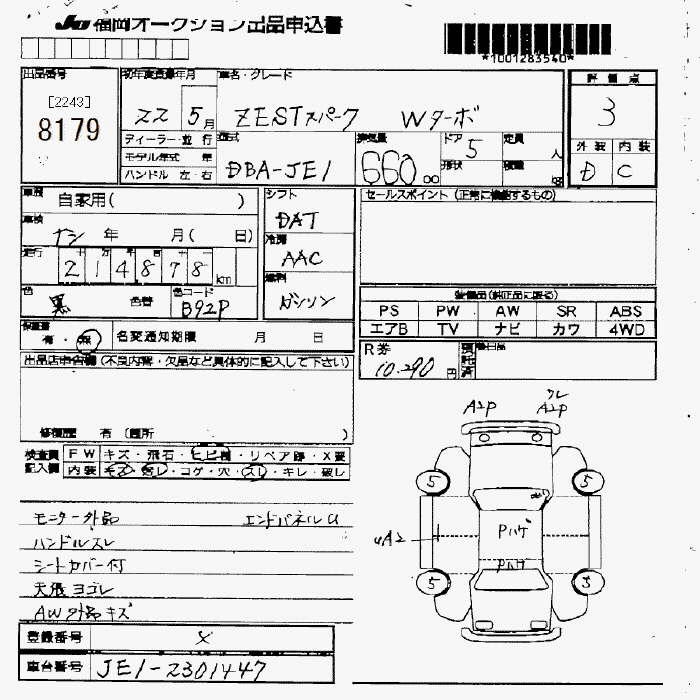 JU 福岡オークション出品申込書
*1001283540*
出品番号 初年度登録年月 車名・グレード 評価点
[2243]
8179
22 5月 ZESTスパーク Wターボ 3
ディーラー・並行 型式 排気量 ドア 5 定員 人 外装 内装
モデル年式 年 DBA-JE1 660.00 形状 積載 kg D C
ハンドル 左・右
車歴 自家用( ) シフト DAT セールスポイント (正常に機能するもの)
車検 ナシ 年 月( 日) 冷房 AAC
走行 十 万 千 百 十
2 1 4 8 7 8 km 燃料 ガソリン
色 黒 色替 色コード B92P
装備品(純正品に限る)
PS PW AW SR ABS
エアB TV ナビ カワ 4WD
保証書 有・無 名変通知期限 月 日
R券 10.290円 後日品
出品店申告欄(不良内容・欠品など具体的に記入して下さい)
修復歴 有〔箇所 〕
検査員記入欄 FW キズ・飛石・ヒビ割・リペア跡・X要
内装 キズ・ヨゴレ・コゲ・穴・スレ・キレ・破レ
A2P ワレ A2P
5 5
UA2 Pハゲ
Pハゲ
5 5
モニター外品 エンドパネルU
ハンドルスレ
シートカバー付
天張ヨゴレ
AW外品キズ
登録番号 X
車台番号 JE1-2301447